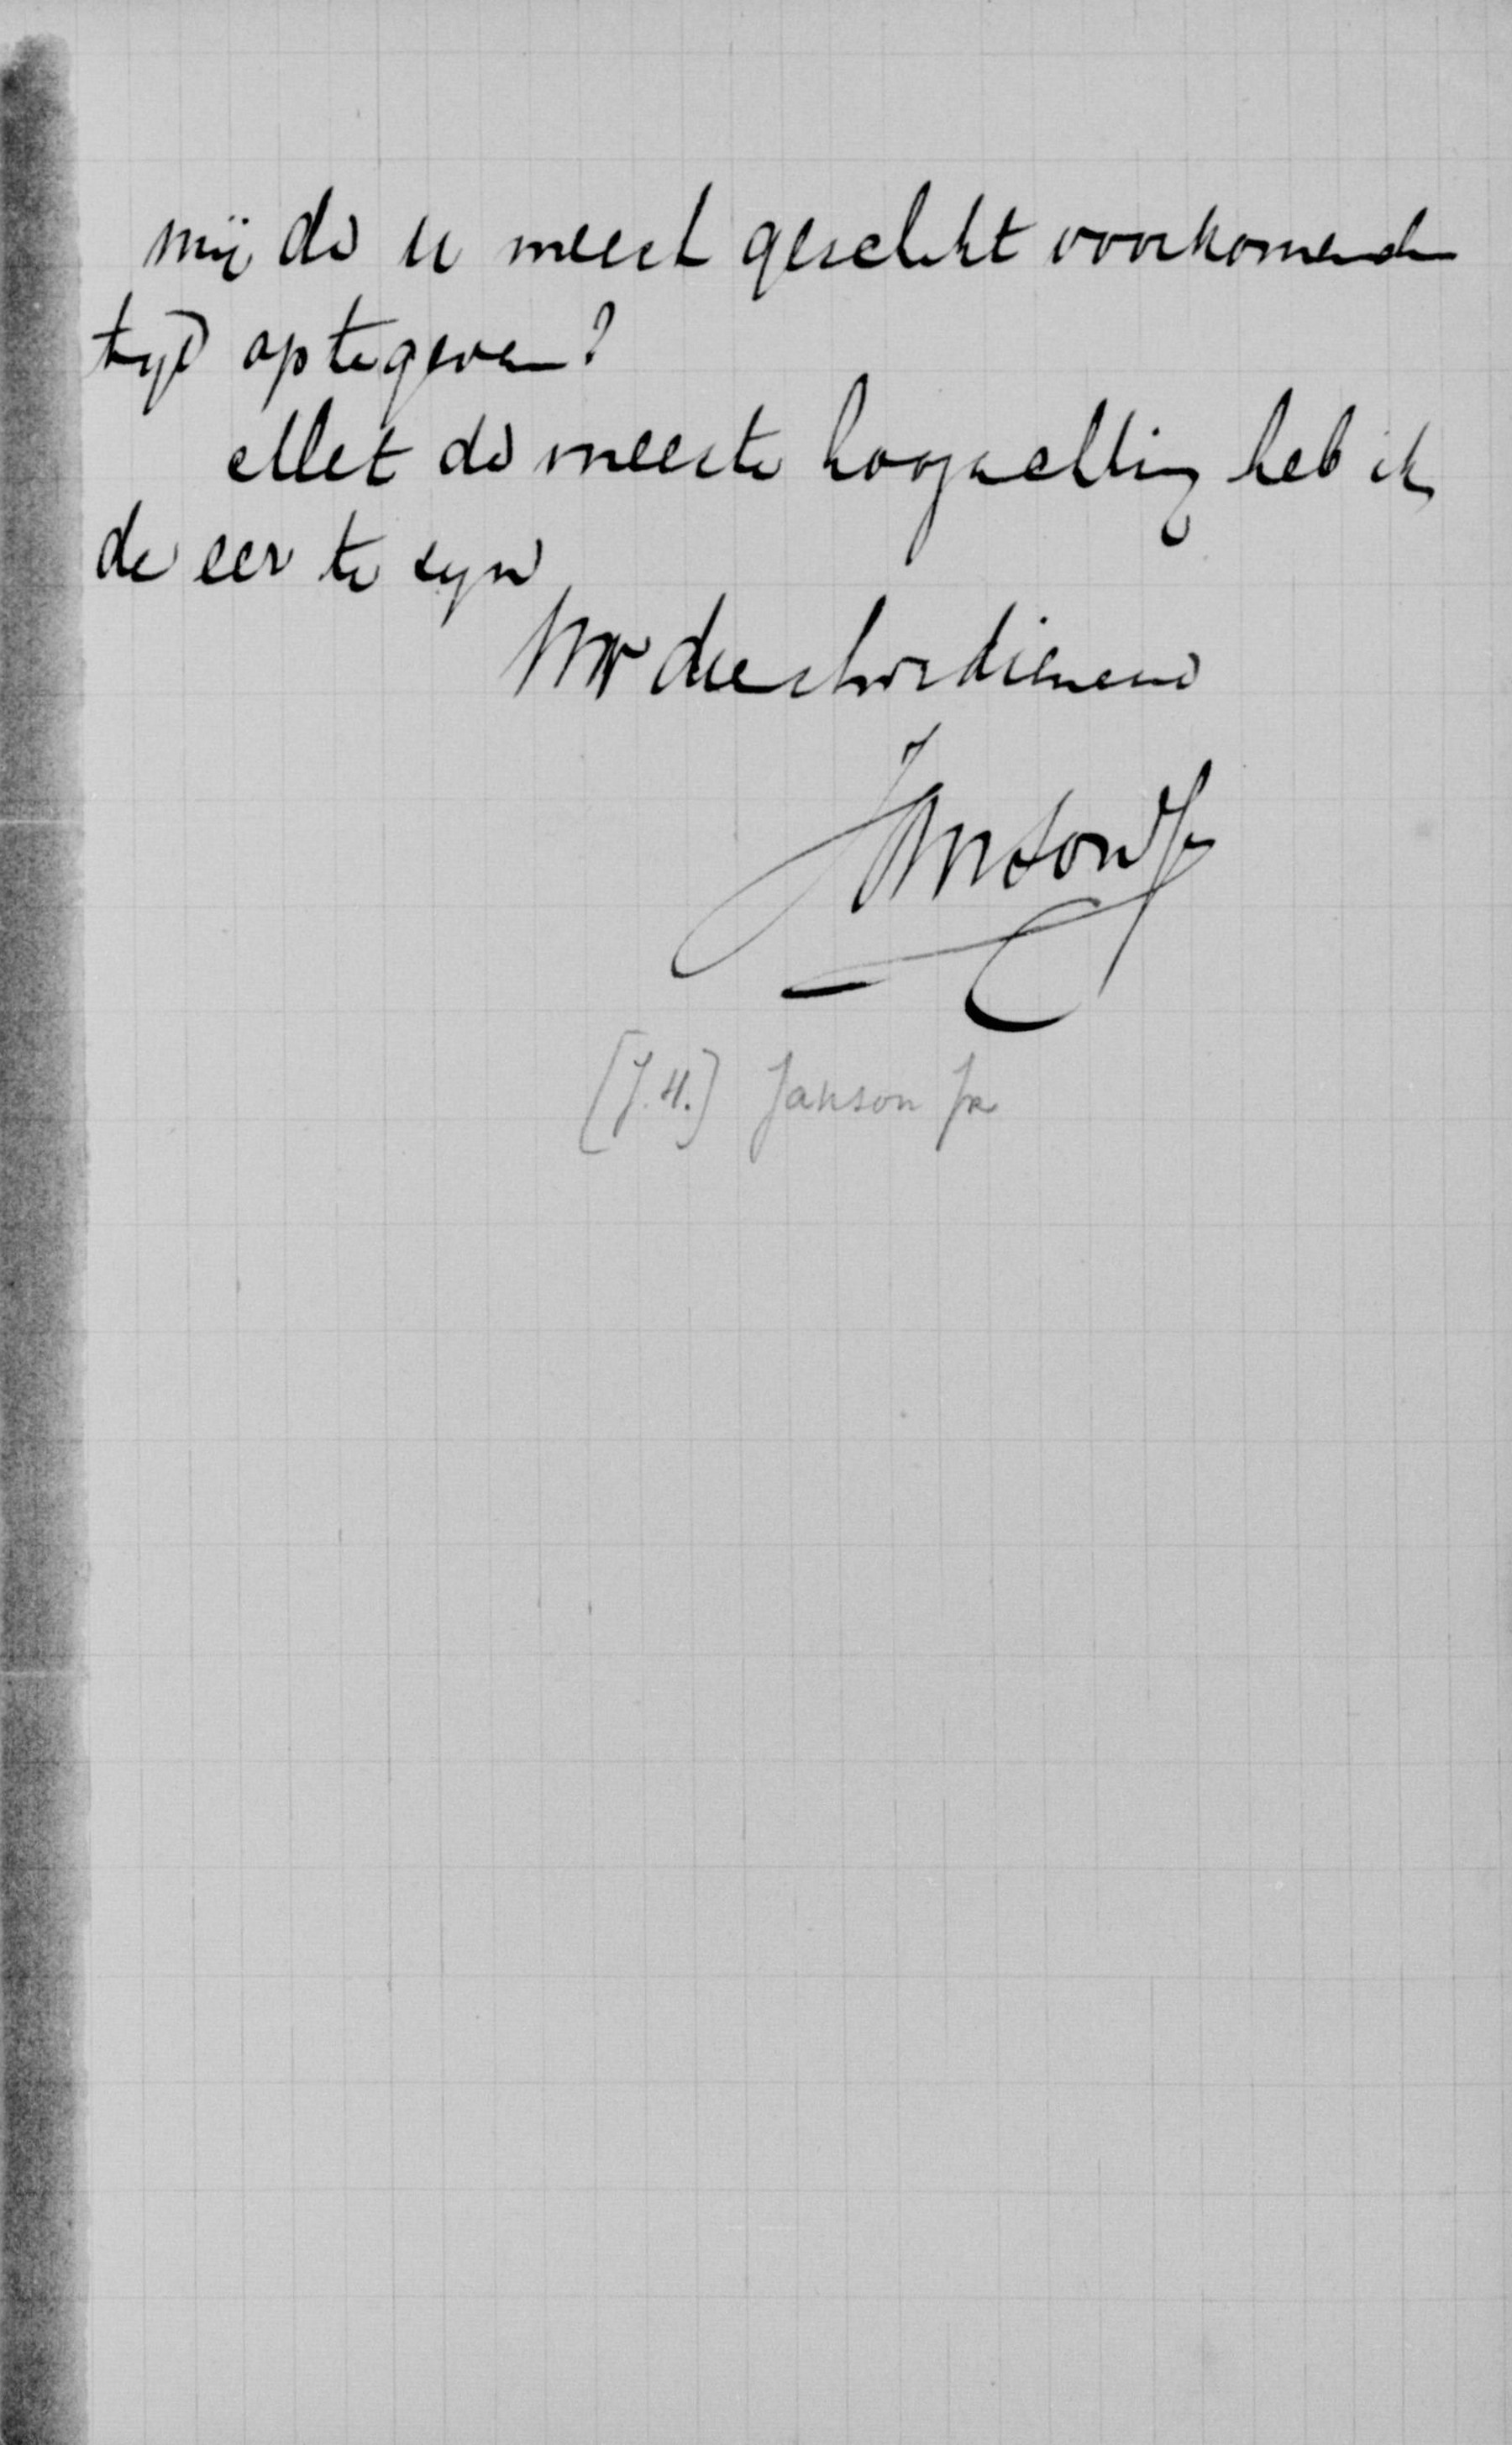 mij de u meest geschikt voorkomende
tijd op te geven?
Met de meeste hoogachting heb ik
de eer te zijn
Uw dienstw dienend
Janson Jr
[J.H.] Janson Jr